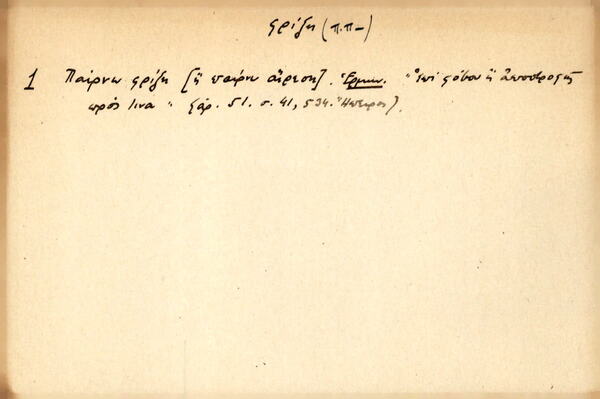 φρίξη (π.π-)
1 Παίρνω φρίξη [ἤ παίρνω αἵρεση]. Ἑρμην. "ἐπί φόβου ἤ ἀποστροφῆς
πρός τινα" (άρ. 51. σ. 41, 534. Ἤπειρος).